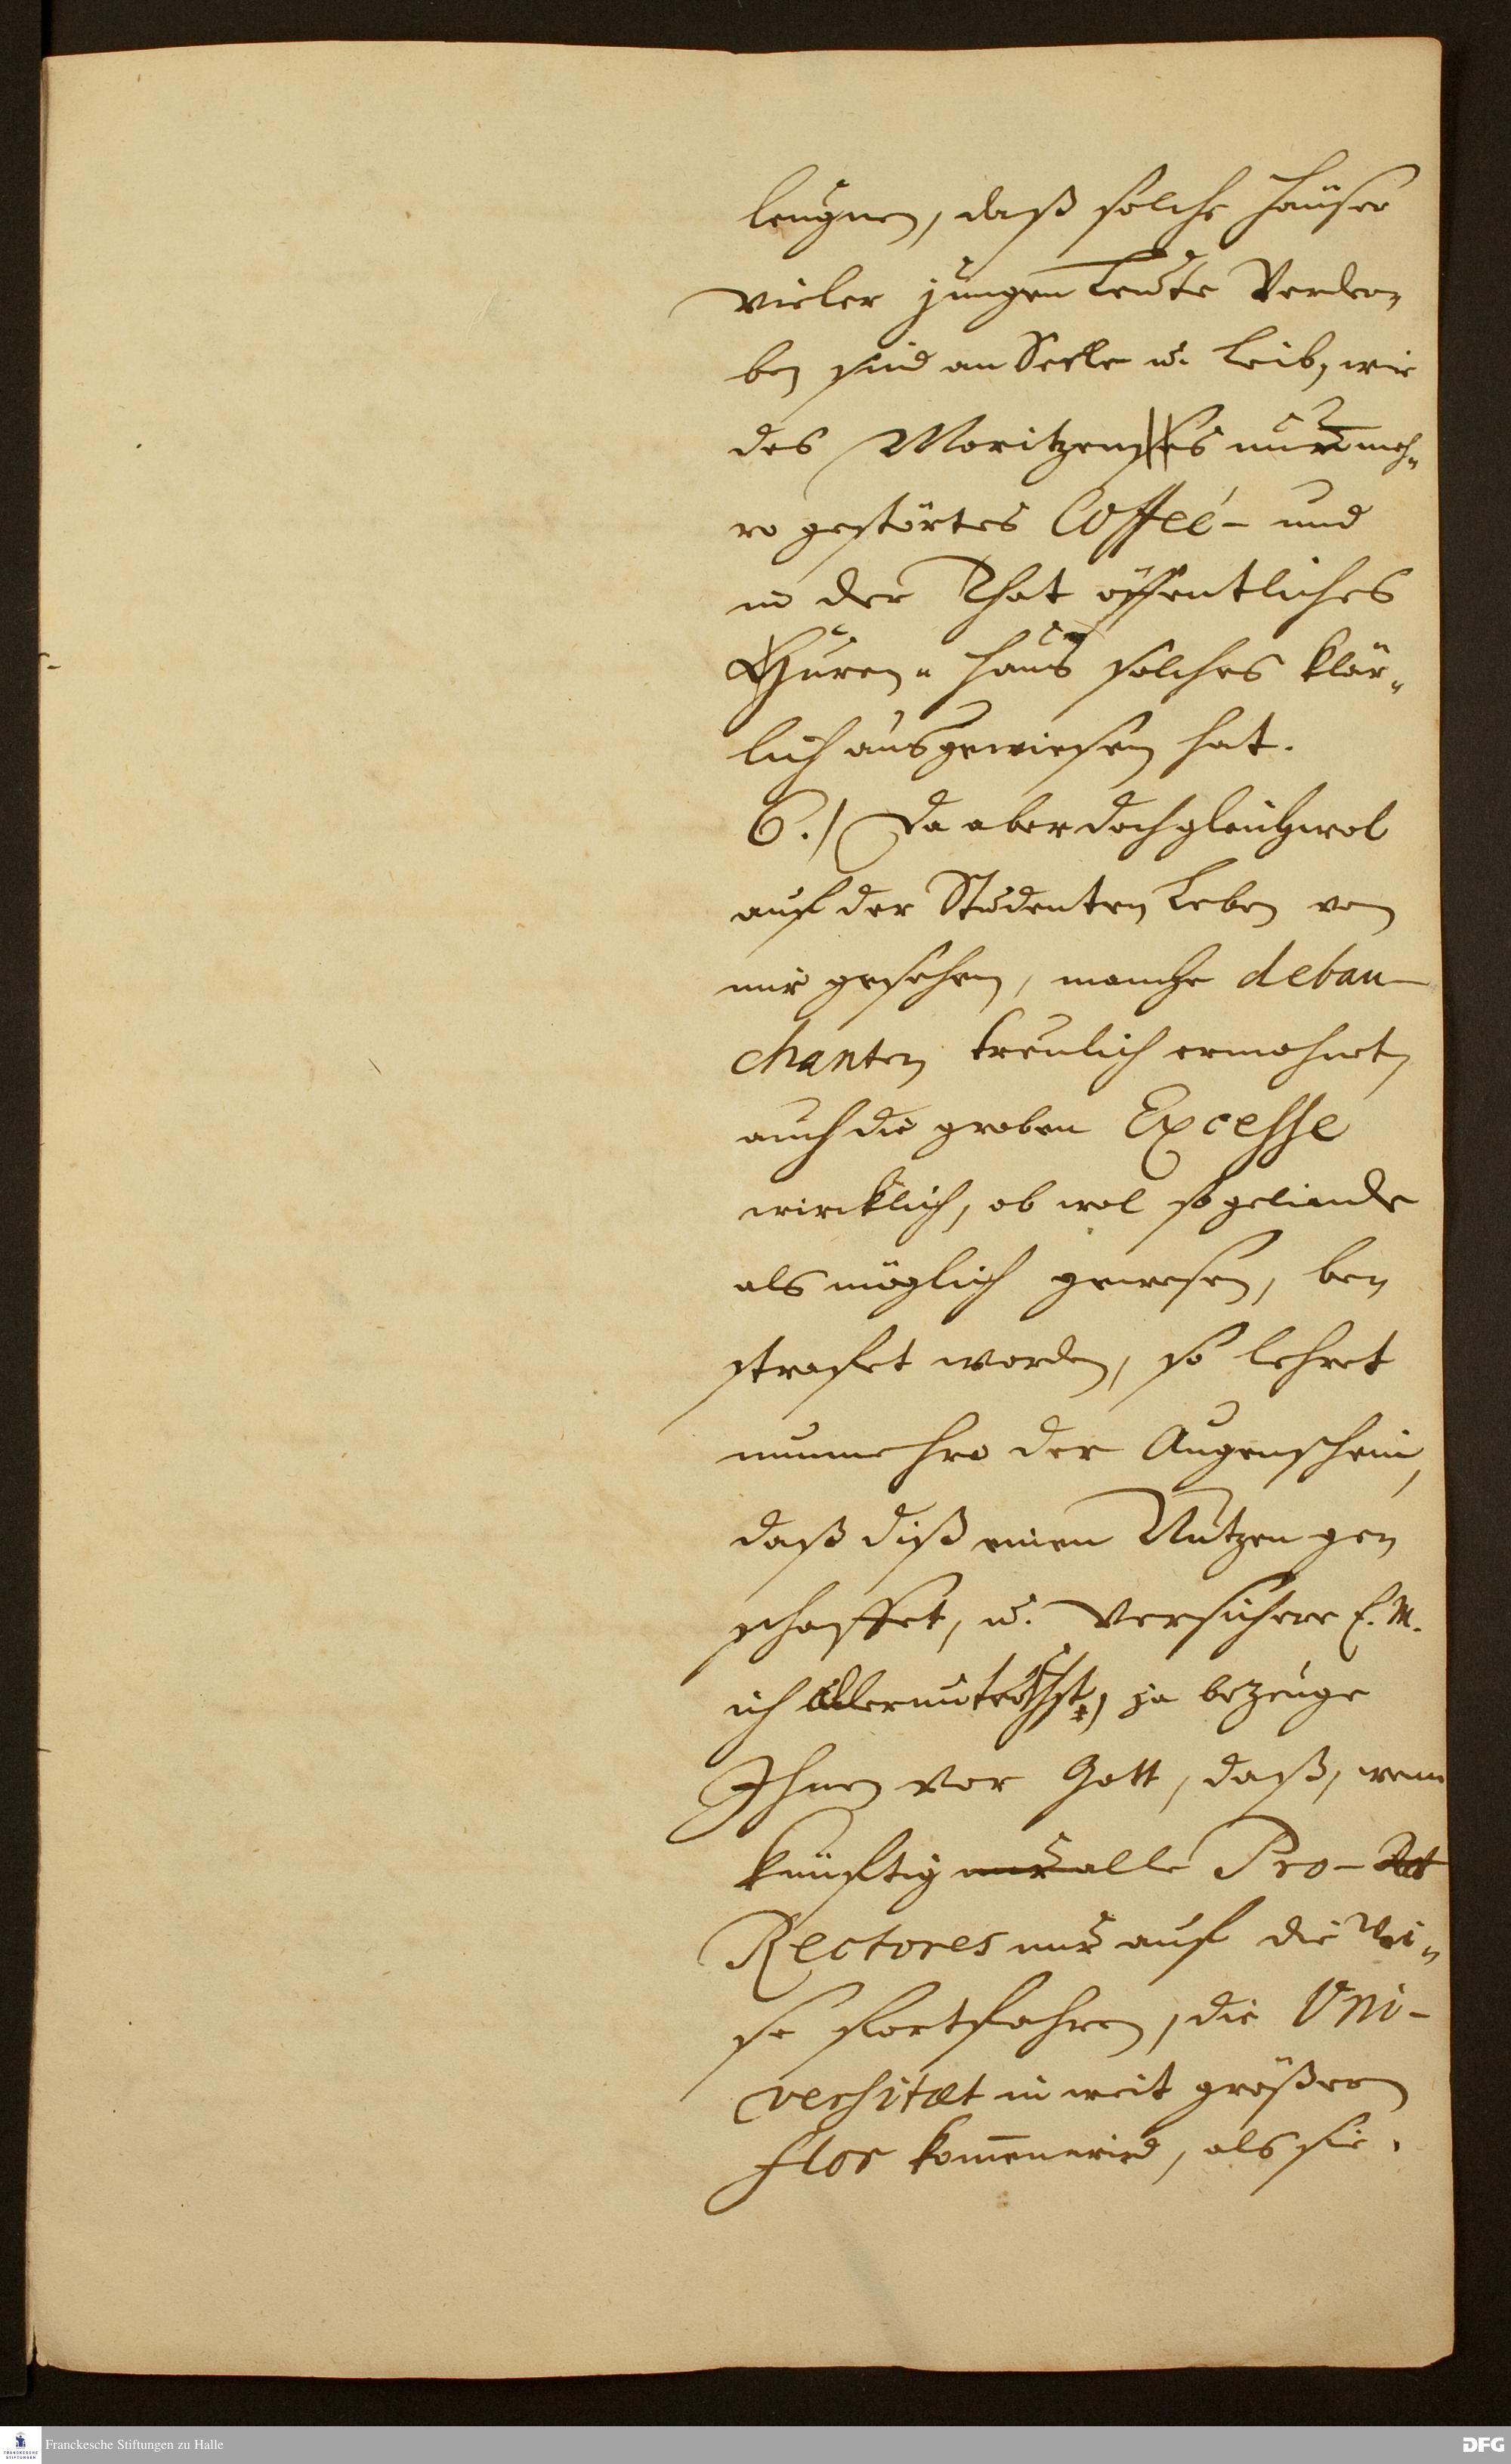 leugnen, daß solche Häuser
vieler jungen Leute Verder-
ben sind an Seele u. Leib, wie
des Moritzens nunmeh-
ro gestörtes Coffeé- und
in der That öffentliches
Huren-Haus solches klär-
lich ausgewiesen hat.
6.) Da aber doch gleichwol
auf der Studenten Leben von
mir gesehen, manche debau-
chanten treulich ermahnet,
auch die groben Excesse
wircklich, ob wol so gelinde
als möglich gewesen, be-
strafet worden, so lehret
nunmehro der Augenschein,
daß diß einen Nutzen ge-
schaffet, u. versichere E. M.
ich allerunterthst, ja bezeuge
Ihnen vor Gott, daß, wenn
künftig nur alle Pro-
Rectores nur auf die Wei-
se fortfahren, die Uni-
versitæt in weit größern
Flor kommen wird, als sie
Franckesche Stiftungen zu Halle
DFG